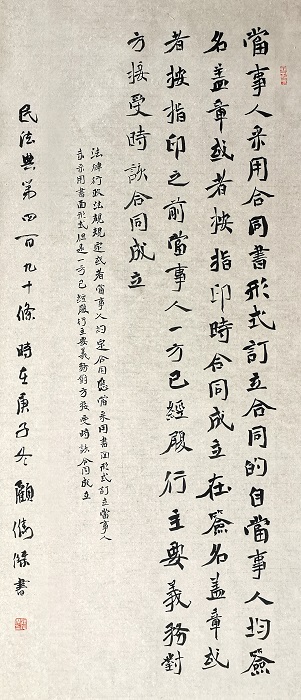 當事人采用合同書形式訂立合同的自當事人均簽
名盖章或者按指印時合同成立在簽名盖章或
者按指印之前當事人一方已經履行主要義務對
方接受時該合同成立
法律行政法規規定或者當事人约定合同應當采用書面形式訂立當事人
未采用書面形式但是一方已經履行主要義務對方接受時該合同成立
民法典第四百九十條 時在庚子冬 顧書